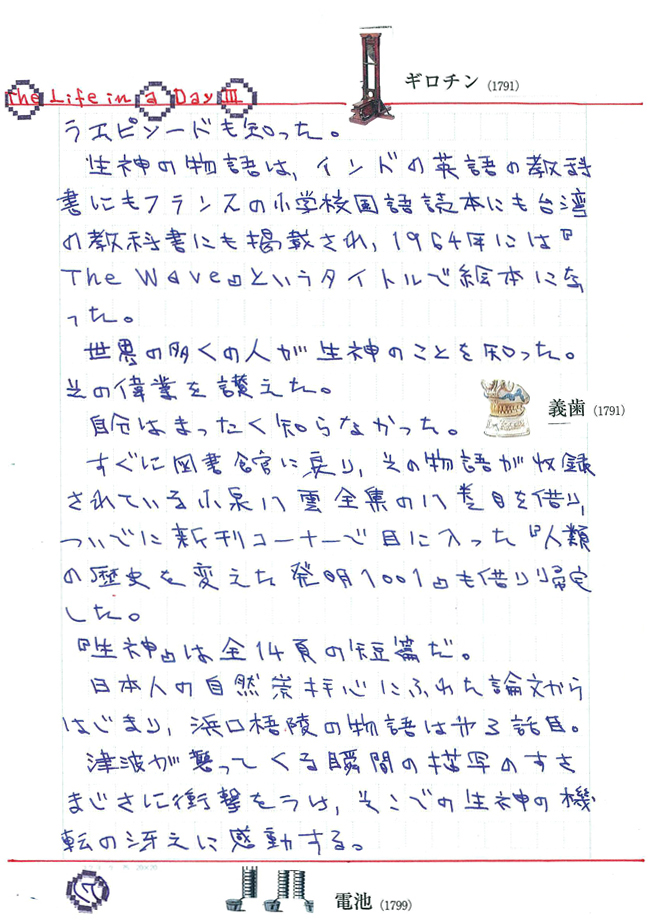 ギロチン (1791)
The Life in a Day III
うエピソードも知った。
生神の物語は，インドの英語の教科
書にもフランスの小学校国語読本にも台湾
の教科書にも掲載され，1964年には『
The Wave』というタイトルで絵本にな
った。
世界の多くの人が生神のことを知った。
その偉業を讃えた。
自分はまったく知らなかった。
義歯 (1791)
すぐに図書館に戻り，その物語が収録
されている小泉八雲全集の八巻目を借り，
ついでに新刊コーナーで目に入った『人類
の歴史を変えた発明1001』も借り帰宅
した。
『生神』は全14頁の短篇だ。
日本人の自然崇拝心にふれた論文から
はじまり，浜口梧陵の物語は第3話目。
津波が襲ってくる瞬間の描写のすさ
まじさに衝撃をうけ，そこでの生神の機
転の冴えに感動する。
電池 (1799)